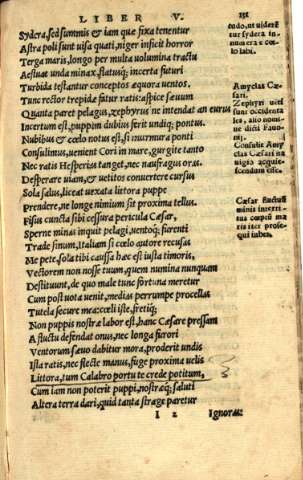 LIBER V.
151
Sydera, sed summis & iam quæ fixa tenentur
Astra poli sunt uisa quati, niger inficit horror
Terga maris, longo per multa uolumina tractu
Aestuat unda minax, flatusq; incerta futuri
Turbida testantur conceptos æquora uentos.
Tunc rector trepidæ futur ratis: aspice sæuum
Quanta paret pelagus, zephyrus ne intendat an eurus
Incertum est, puppim dubius ferit undiq; pontus.
Nubibus & cœlo notus est, si murmura ponti
Consulimus, uenient Cori in mare, gurgite tanto
Nec ratis Hesperias tanget, nec naufragus oras.
Desperare uiam, & uetitos conuertere cursus
Sola salus, liceat uexata littora puppe
Prendere, ne longe nimium sit proxima tellus.
Fisus cuncta sibi cessura pericula Cæsar,
Sperne minas inquit pelagi, uentoq; furenti
Trade sinum, Italiam si cœlo autore recusas
Me pete, sola tibi caussa hæc est iusta timoris,
Vectorem non nosse tuum, quem numina nunquam
Destituunt, de quo male tunc fortuna meretur
Cum post uota uenit, medias perrumpe procellas
Tutela secure mea: cœli iste, fretiq;
Non puppis nostræ labor est, hanc Cæsare pressam
A fluctu defendat onus, nec longa furori
Ventorum sæuo dabitur mora, proderit undis
Ista ratis, nec flecte manus, fuge proxima uelis
Littora, tum Calabro portu te crede potitum,
Cum iam non poterit puppi, nostræq; saluti
Altera terra dari, quid tanta strage paretur
I 2 Ignoras:
endo, ut uidere
tur sydera in
numera e cœ-
lo labi.
Amyclas Cæ-
sari.
Zephyri uen
ti
Consulit Amy
clas Cæsari na
uigio
Cæsar fluctuũ